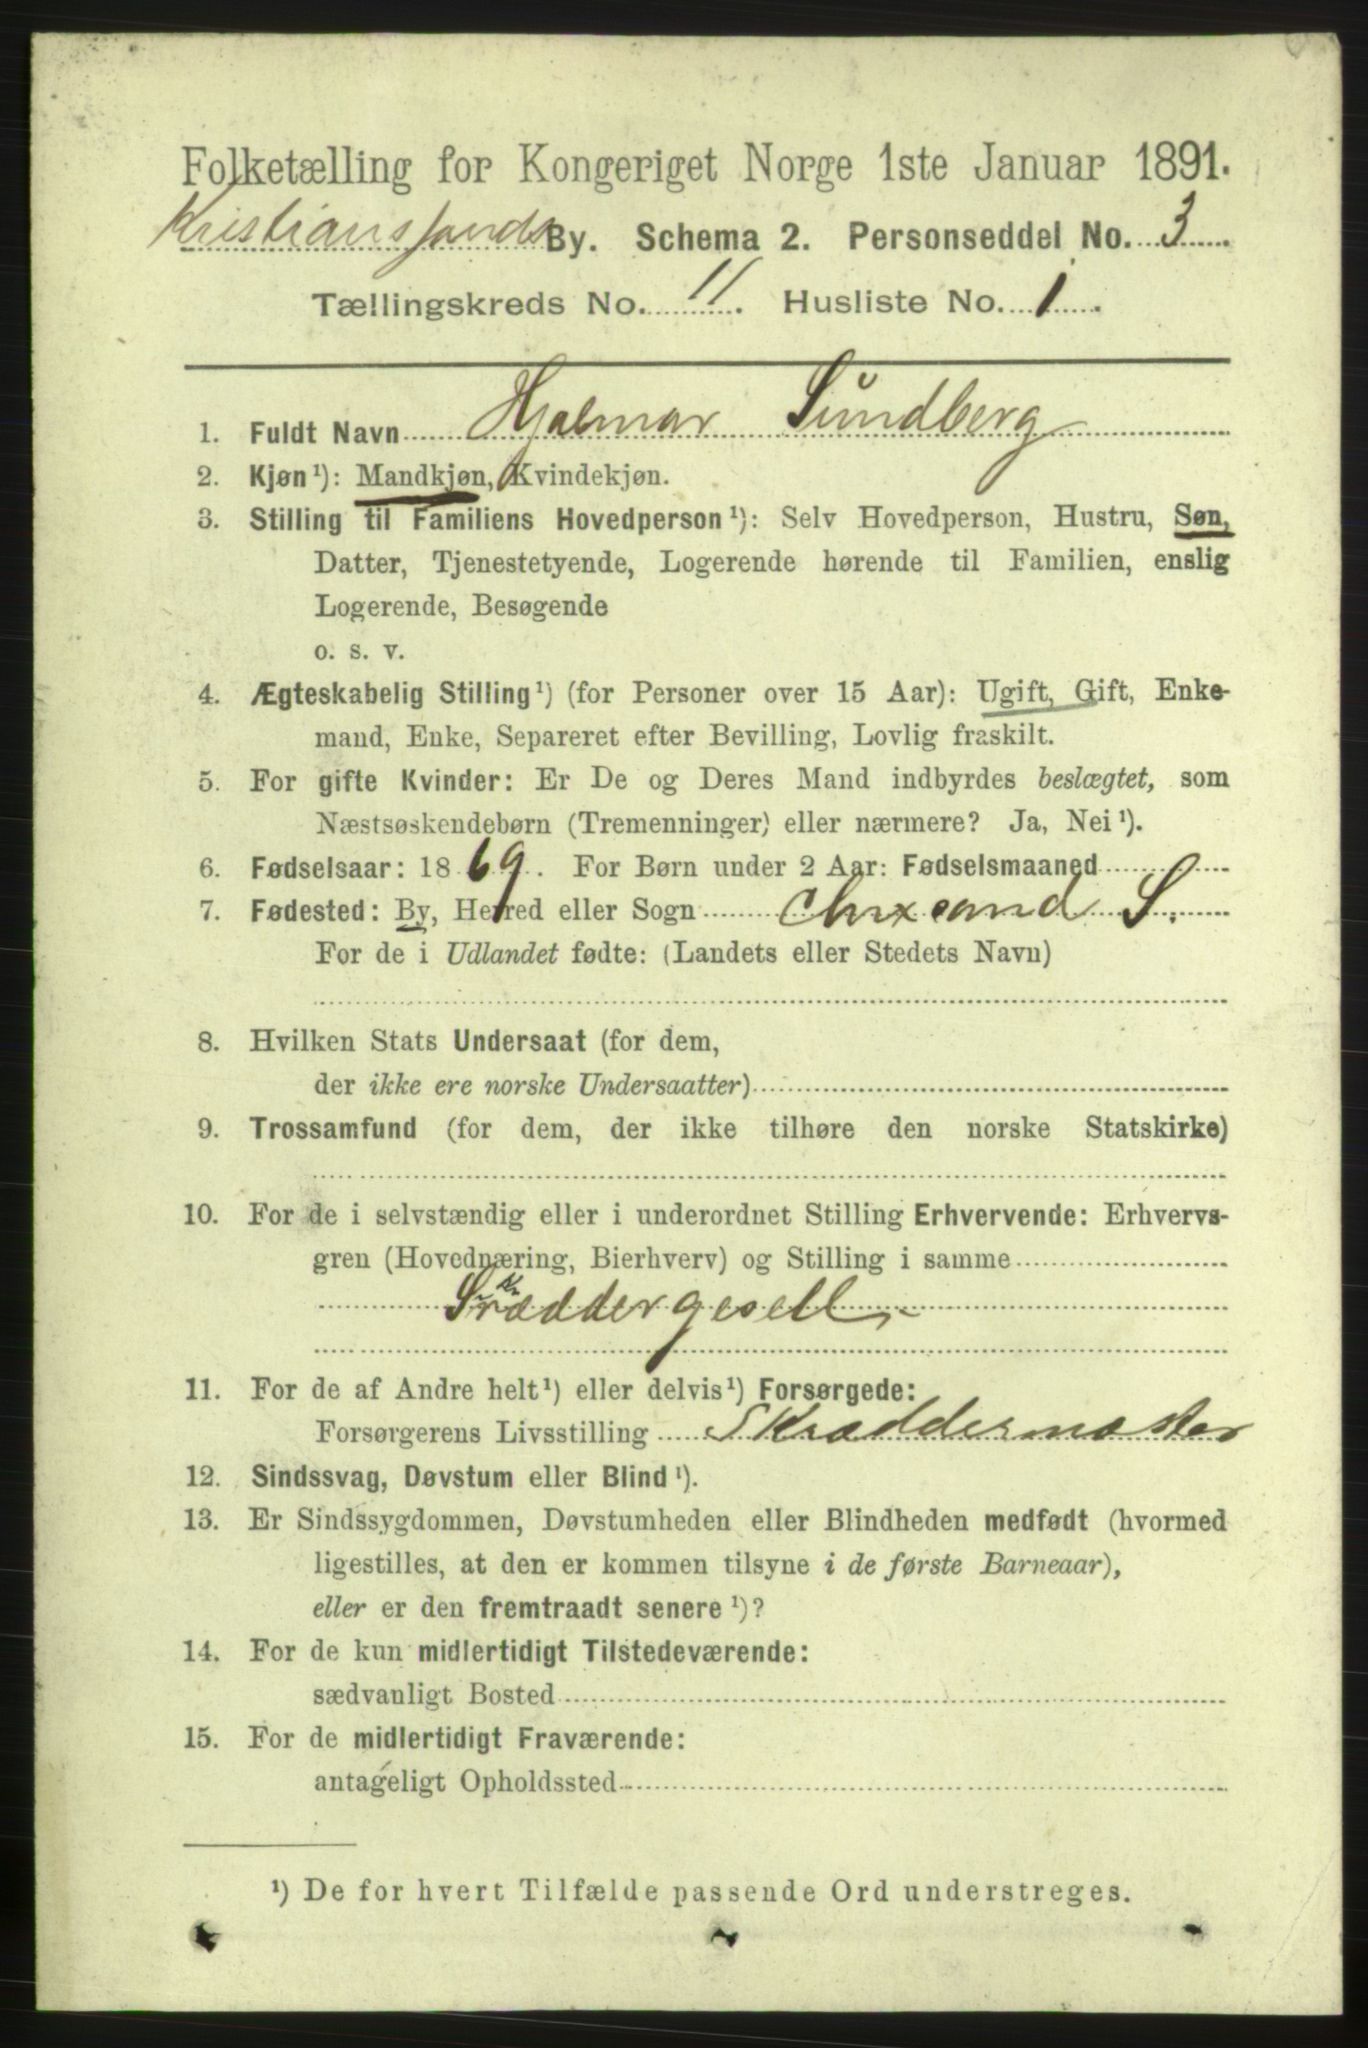 Folketælling for Kongeriget Norge 1ste Januar 1891.
Kristianssands By. Schema 2. Personseddel No. 3.
Tællingskreds No. 11. Husliste No. 1.
1. Fuldt Navn Hjalmar Sundberg
2. Kjøn¹): Mandkjøn, Kvindekjøn.
3. Stilling til Familiens Hovedperson¹): Selv Hovedperson, Hustru, Søn,
Datter, Tjenestetyende, Logerende hørende til Familien, enslig
Logerende, Besøgende
o. s. v.
4. Ægteskabelig Stilling¹) (for Personer over 15 Aar): Ugift, Gift, Enke-
mand, Enke, Separeret efter Bevilling, Lovlig fraskilt.
5. For gifte Kvinder: Er De og Deres Mand indbyrdes beslægtet, som
Næstsøskendebørn (Tremenninger) eller nærmere? Ja, Nei¹).
6. Fødselsaar: 1869. For Børn under 2 Aar: Fødselsmaaned
7. Fødested: By, Herred eller Sogn Chrxsand S.
For de i Udlandet fødte: (Landets eller Stedets Navn)
8. Hvilken Stats Undersaat (for dem,
der ikke ere norske Undersaatter)
9. Trossamfund (for dem, der ikke tilhøre den norske Statskirke)
10. For de i selvstændig eller i underordnet Stilling Erhvervende: Erhvervs-
gren (Hovednæring, Bierhverv) og Stilling i samme
Skræddergesell
11. For de af Andre helt¹) eller delvis¹) Forsørgede:
Forsørgerens Livsstilling Skræddermæster
12. Sindssvag, Døvstum eller Blind¹).
13. Er Sindssygdommen, Døvstumheden eller Blindheden medfødt (hvormed
ligestilles, at den er kommen tilsyne i de første Barneaar),
eller er den fremtraadt senere¹)?
14. For de kun midlertidigt Tilstedeværende:
sædvanligt Bosted
15. For de midlertidigt Fraværende:
antageligt Opholdssted
¹) De for hvert Tilfælde passende Ord understreges.